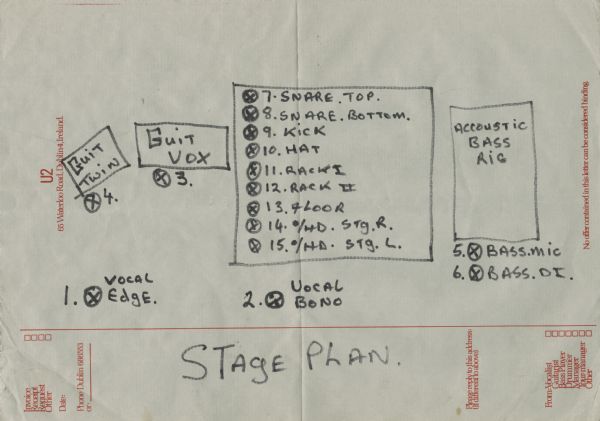 7. SNARE. TOP.
8. SNARE. BOTTOM.
9. KICK
10. HAT
11. RACK I
12. RACK II
13. FLOOR
14. O/HD. STG. R.
15. O/HD. STG. L.
GUIT
TWIN
4.
GUIT
VOX
3.
ACCOUSTIC
BASS
RIG
5. BASS. MIC
6. BASS. DI.
1. VOCAL
EDGE.
2. VOCAL
BONO
STAGE PLAN.
U2
65 Waterloo Road, Dublin 4, Ireland.
No offer contained in this letter can be considered binding.
Invoice
Receipt
Request
Other
Date:
Phone Dublin
or:
Please reply to this address
(if different to above)
From: Vocalist
Guitarist
Bass Player
Drummer
Manager
Tour manager
Other